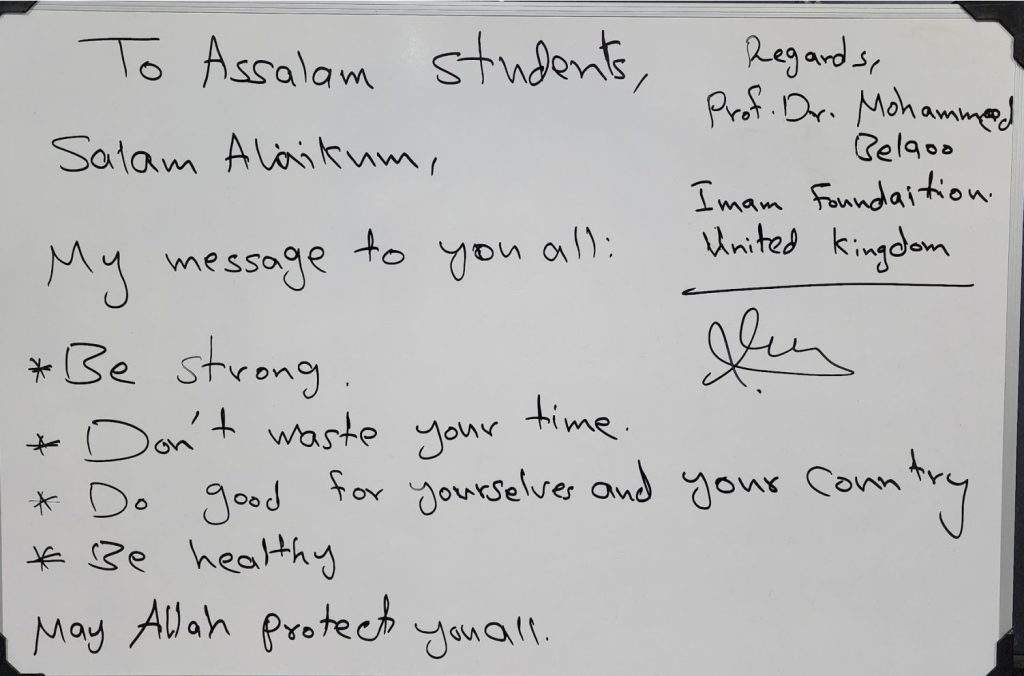 To Assalam students,
Salam Alaikum,
My message to you all:
* Be strong.
* Don't waste your time.
* Do good for yourselves and your Country
* Be healthy
May Allah protect you all.
Regards,
Prof. Dr. Mohammed
Imam Foundaition.
United Kingdom